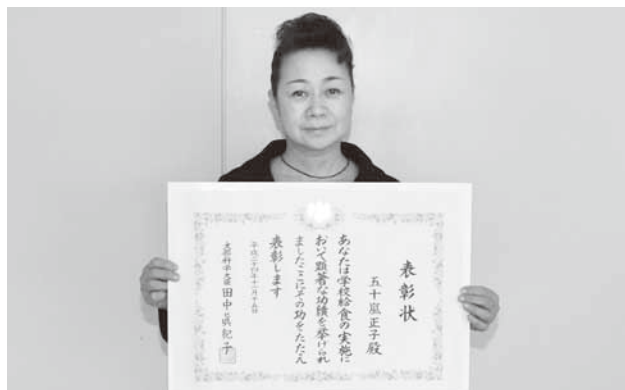 表彰状
五十嵐正子殿
あなたは学校給食の実施に
おいて顕著な功績を挙げられ
ましたここにその功をたたえ
表彰します
平成二十四年十一月十五日
文部科学大臣 田中眞紀子